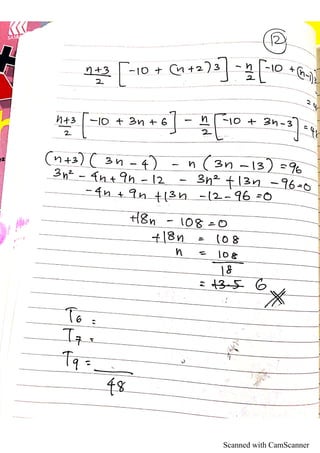 12
n+3/2 [-10 + (n+2)3] - n/2 [-10 + (n-1)3
n+3/2 [-10 + 3n + 6] - n/2 [-10 + 3n-3] = 48
(n+3) (3n - 4) - n (3n - 13) = 96
3n² - 4n + 9n - 12 - 3n² + 13n - 96 = 0
-4n + 9n + 13n - 12 - 96 = 0
+18n - 108 = 0
+18n = 108
n = 108/18
= 6
T6 =
T7 =
T9 =
48
Scanned with CamScanner